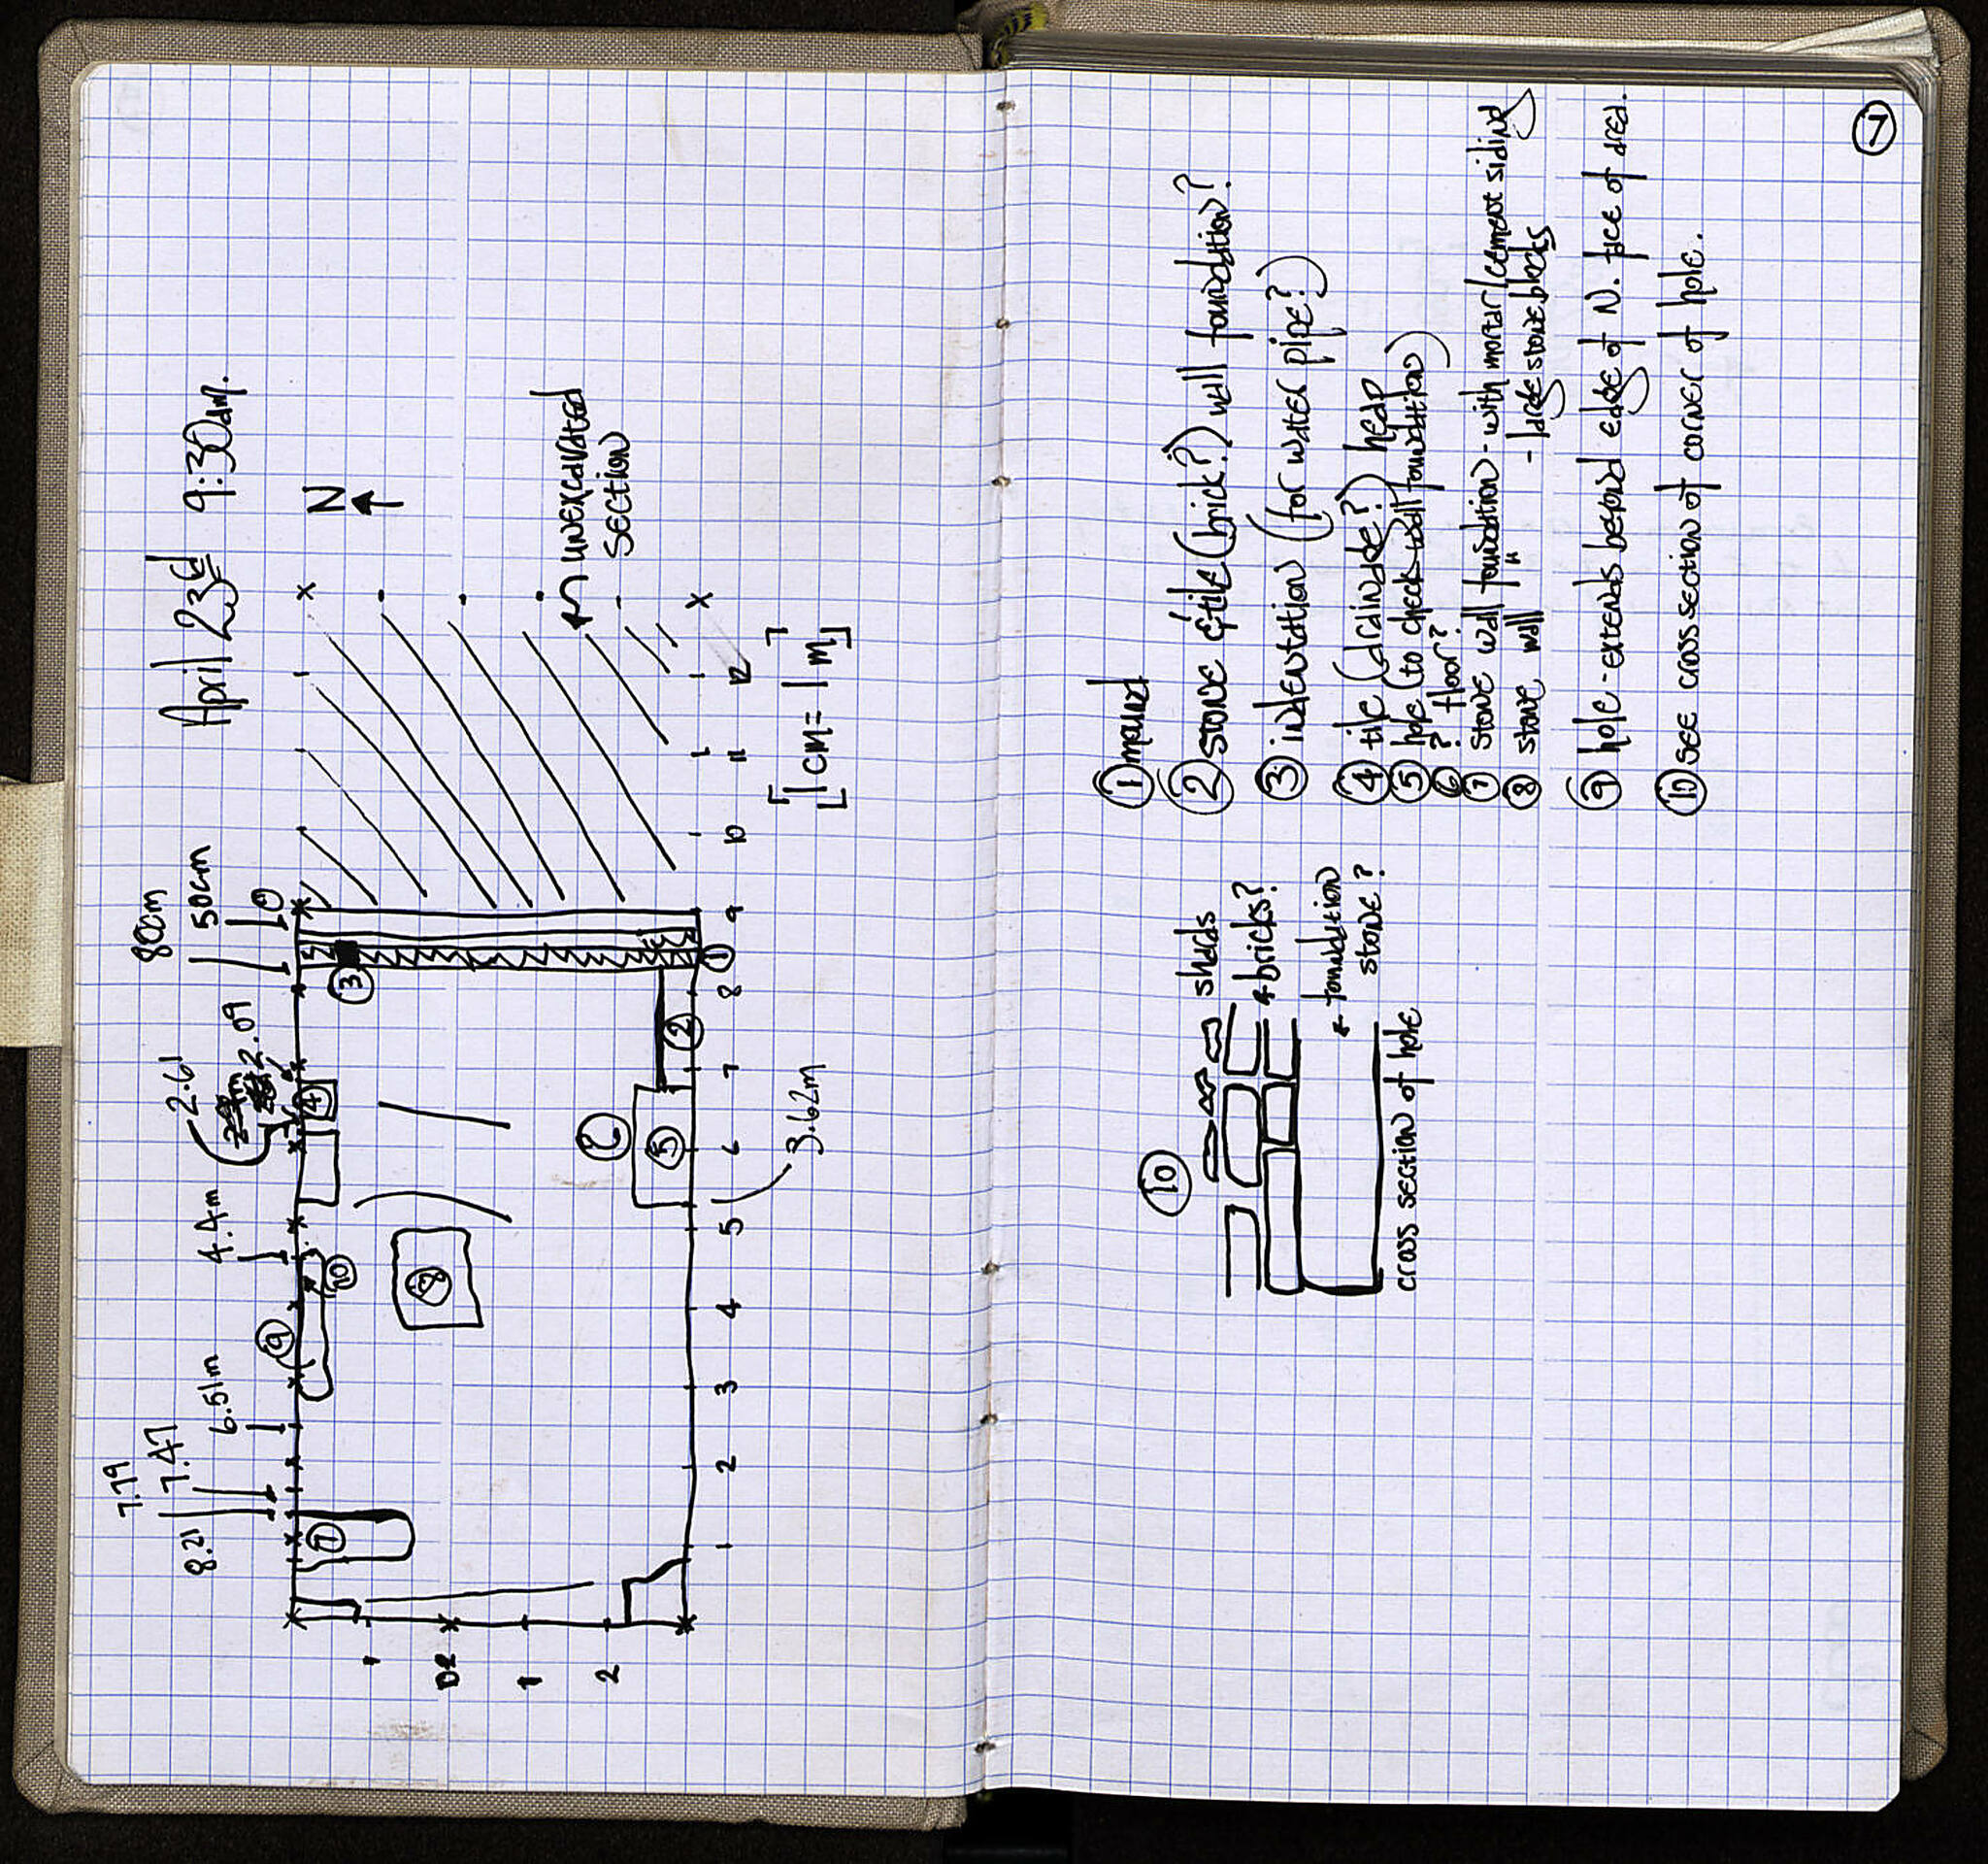 April 23rd 9:30am.
N
80cm
50cm
0
2.61
2.09
4.4m
6.51m
7.47
7.79
8.21
unexcavated
section
3
4
10
9
8
7
5
2
1
1
D2
1
2
1 2 3 4 5 6 7 8 9 10 11 12
3.62m
[1cm = 1m]
7
① mound
② stone & tile (brick?) wall foundation?
③ indentation (for water pipe?)
④ tile (drainage?) heap
⑤ hole (to check wall foundation)
⑥ ? floor?
⑦ stone wall foundation - with mortar/cement siding
⑧ stone wall " - large stone blocks
⑨ hole - extends beyond edge of N. face of area.
⑩ see cross section of corner of hole.
⑩
sherds
bricks?
foundation
stone?
cross section of hole